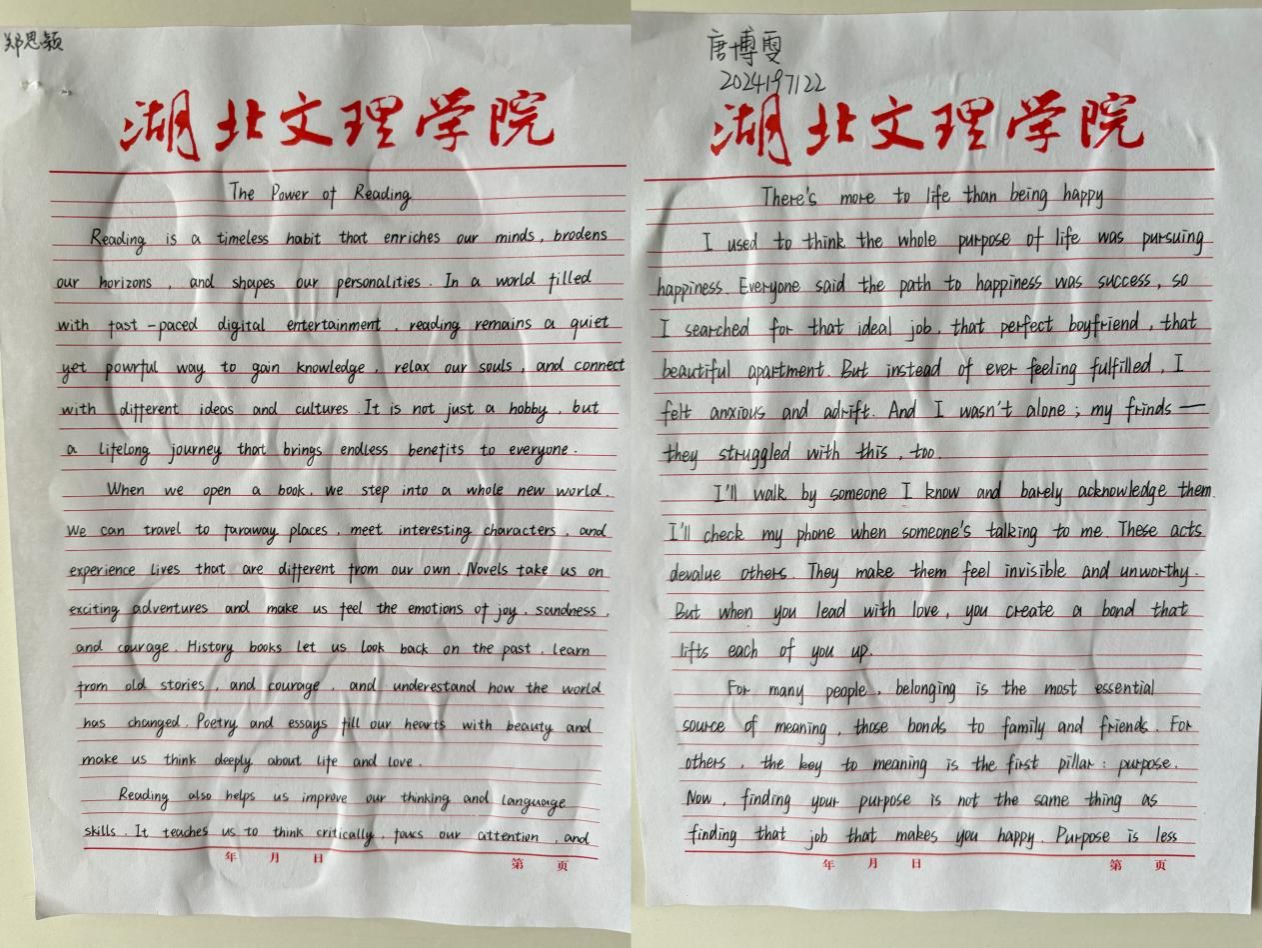 郑思颖
湖北文理学院
The Power of Reading
Reading is a timeless habit that enriches our minds, brodens
our horizons, and shapes our personalities. In a world filled
with fast-paced digital entertainment, reading remains a quiet
yet powrful way to gain knowledge, relax our souls, and connect
with different ideas and cultures. It is not just a hobby, but
a lifelong journey that brings endless benefits to everyone.
When we open a book, we step into a whole new world.
We can travel to faraway places, meet interesting characters, and
experience lives that are different from our own. Novels take us on
exciting adventures and make us feel the emotions of joy, sandness,
and courage. History books let us look back on the past, learn
from old stories, and courage, and underestand how the world
has changed. Poetry and essays fill our hearts with beauty and
make us think deeply about life and love.
Reading also helps us improve our thinking and language
skills. It teaches us to think critically, foucs our attention, and
年 月 日 第 页
唐博雯
2024197122
湖北文理学院
There's more to life than being happy
I used to think the whole purpose of life was pursuing
happiness. Everyone said the path to happiness was success, so
I searched for that ideal job, that perfect boyfriend, that
beautiful apartment. But instead of ever feeling fulfilled, I
felt anxious and adrift. And I wasn't alone; my frinds —
they struggled with this, too.
I'll walk by someone I know and barely acknowledge them.
I'll check my phone when someone's talking to me. These acts
devalue others. They make them feel invisible and unworthy.
But when you lead with love, you create a bond that
lifts each of you up.
For many people, belonging is the most essential
source of meaning, those bonds to family and friends. For
others, the key to meaning is the first pillar: purpose.
Now, finding your purpose is not the same thing as
finding that job that makes you happy. Purpose is less
年 月 日 第 页